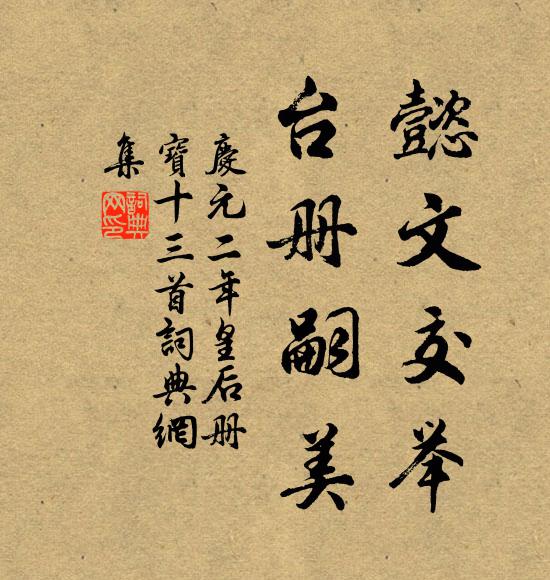 懿文交举
台册嗣美
慶元二年皇后册
寶十三首詞典網
集
詞典
网印